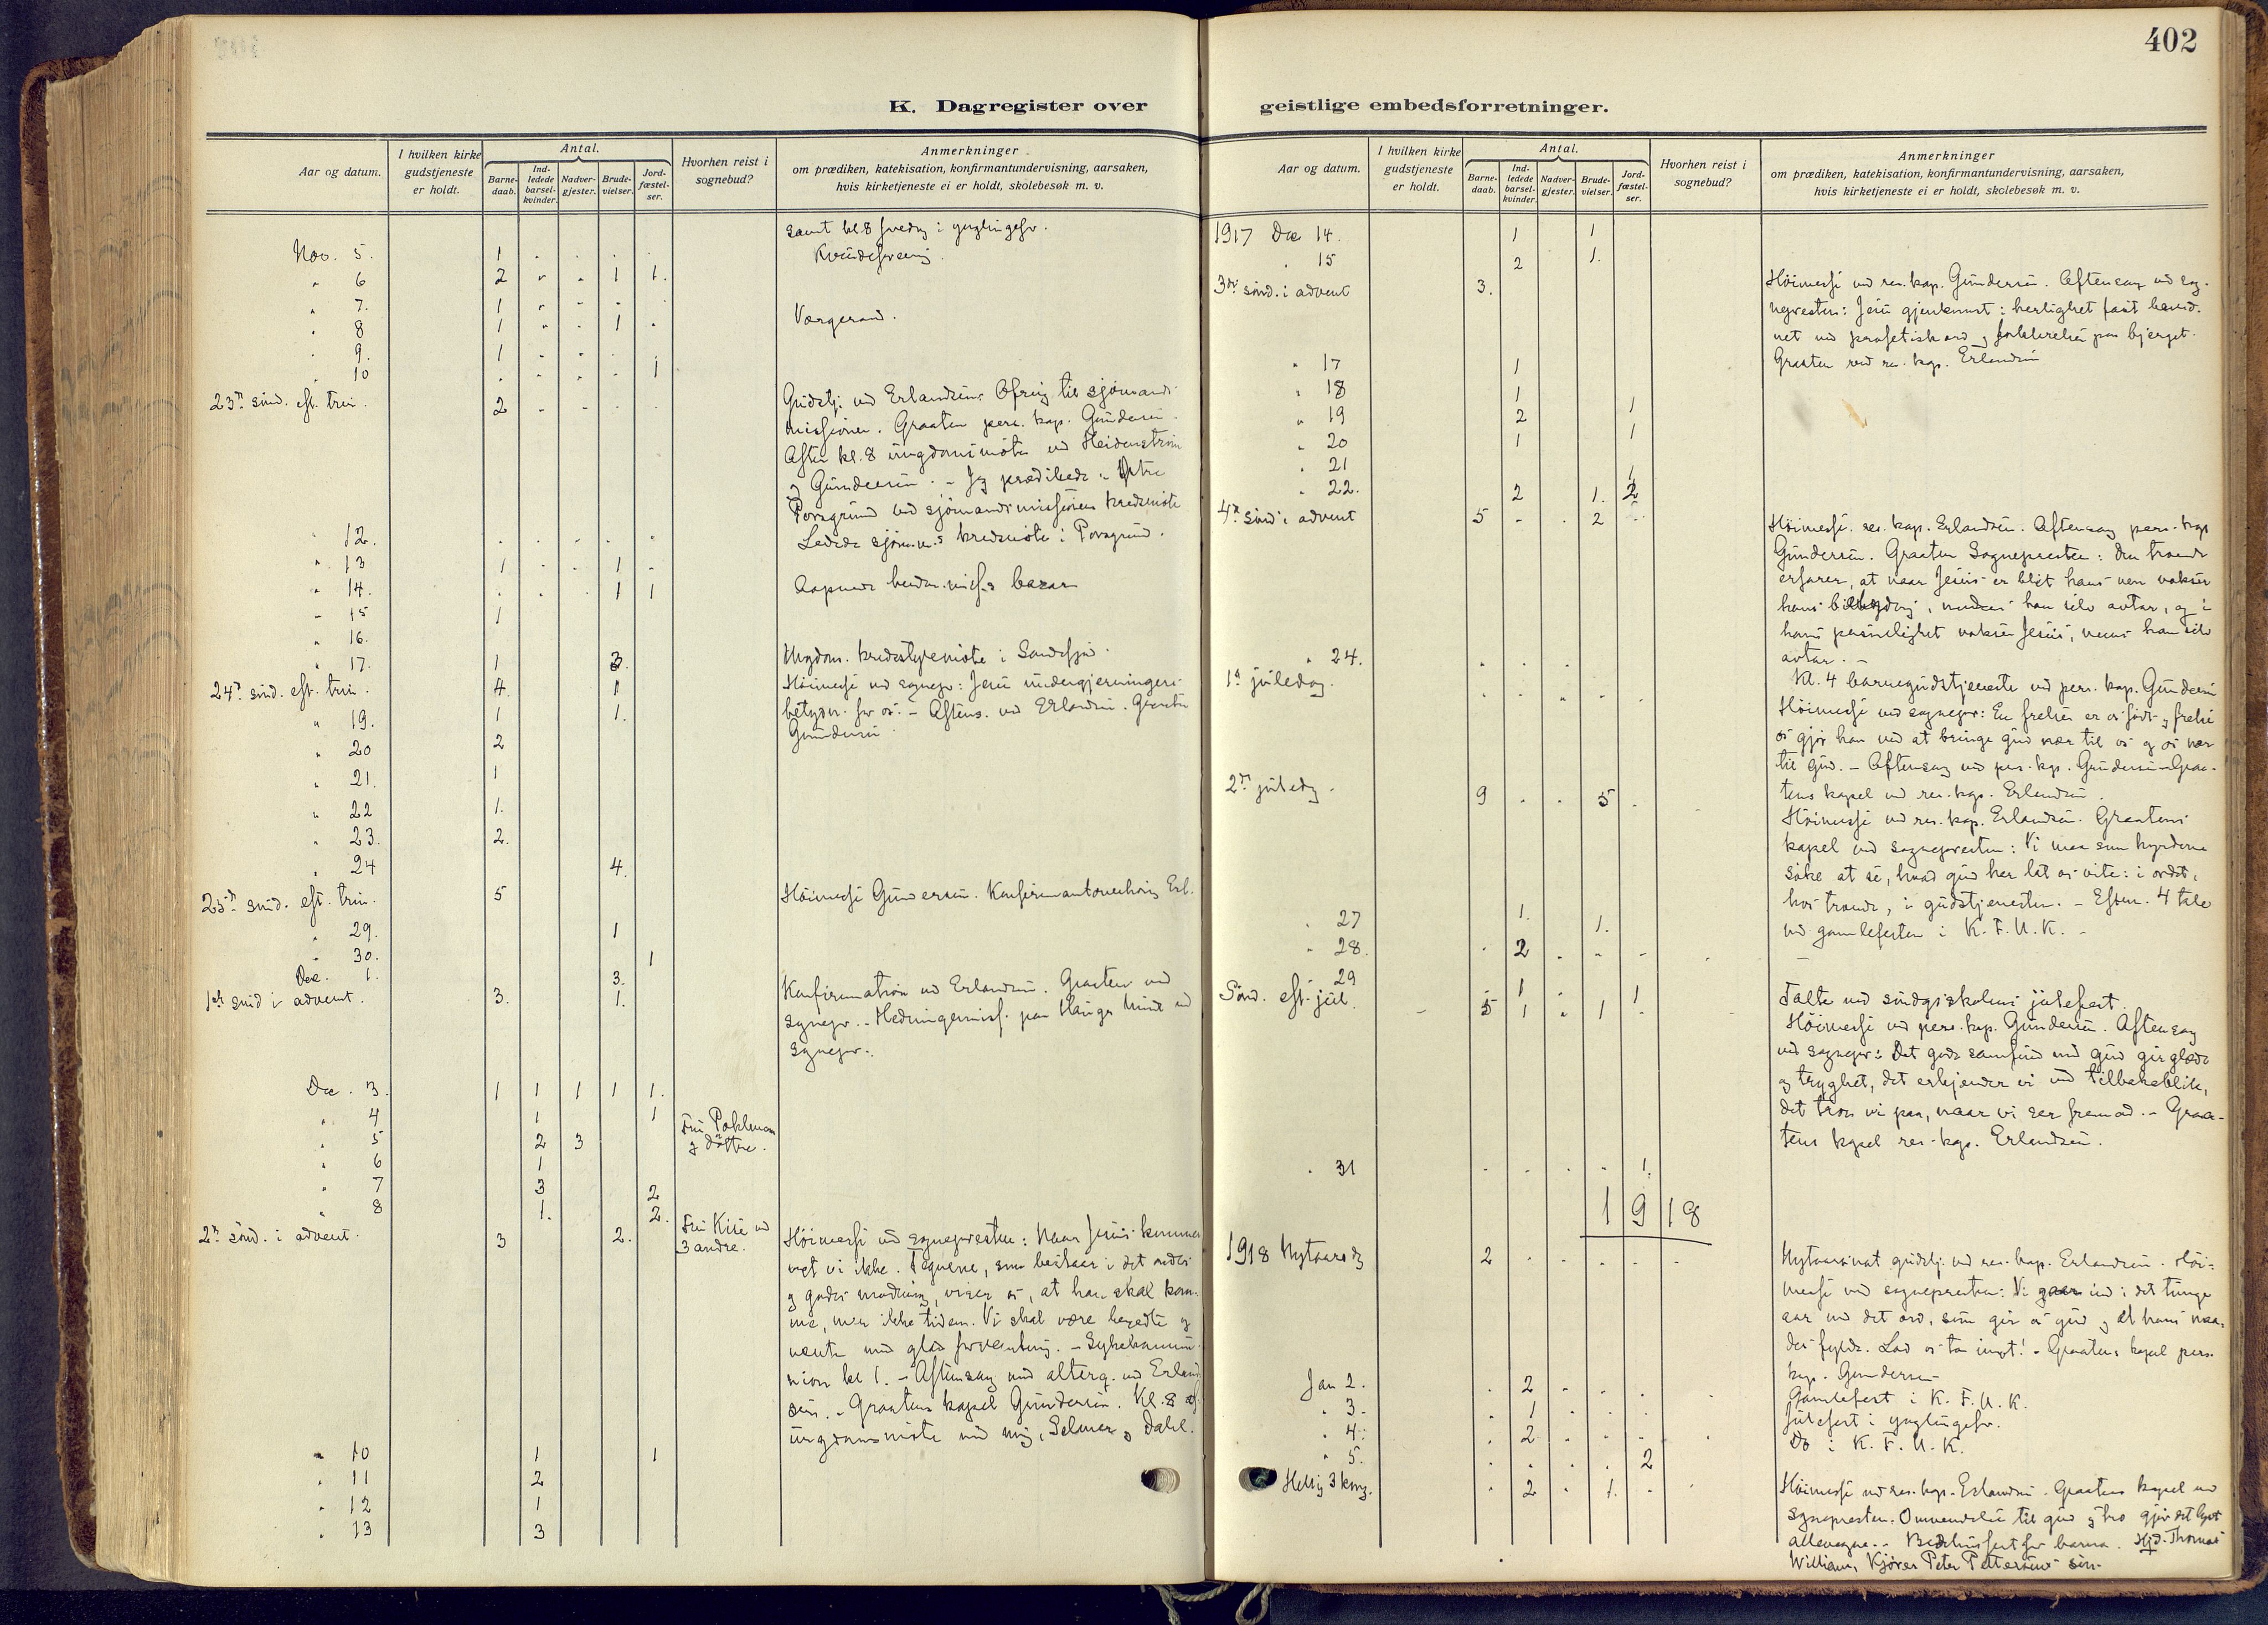 402
K. Dagregister over geistlige embedsforretninger.
Aar og datum.
I hvilken kirke gudstjeneste er holdt.
Antal.
Barnedaab.
Indledede barselkvinder.
Nadvergjester.
Brudevielser.
Jordfæstelser.
Hvorhen reist i sognebud?
Anmerkninger
om prædiken, katekisation, konfirmantundervisning, aarsaken,
hvis kirketjeneste ei er holdt, skolebesøk m. v.
samt kl. 8 i
Nov. 5. 1
" 6 2 " " 1 1.
" 7. 1
" 8 1 " " 1
" 9. 1
" 10 1
23de sønd. eft. trin. 2 Gudstj. ved Erlandsen. Ofring til sjømands-
missionen. Graaten pers. kap. Gundersen.
Aften kl. 8 ungdomsmøte ved Heidenstrøm
og Gundersen. - Jeg prædikede i Østre
Porsgrund ved sjømandsmissionens kredsmøte
" 12. Ledede sjøm.m.s kredsmøte i Porsgrund.
" 13 1 1
" 14. 1 1 bazar
" 15 1
" 16.
" 17. 1 3. Ungdoms. kredsstyremøte i Sandefjord.
24de sønd. eft. trin. 4. 1 Høimesse ved sognepr: Jesu undergjerningers
" 19. 1 1. betydn. for os. - Aftens. ved Erlandsen. Graaten
" 20 2 Gundersen
" 21. 1
" 22 1.
" 23. 2.
" 24 4.
25de sønd. eft. trin. 5 Høimesse Gundersen. Erl.
" 29. 1
" 30. 1
Dec. 1. 3.
1ste sønd i advent. 3. 1. Konfirmation ved Erlandsen. Graaten ved
sognepr. - Hedningemiss. paa Hauges Minde ved
sognepr.
Dec. 3. 1 1 1 1 1.
" 4 1 1 Fru Pohlman
" 5 2 3 og døttre.
" 6 1
" 7 3 2
" 8 1. 2.
2den sønd. i advent. 3 2. 3 andre. Høimesse ved sognepresten: Naar Jesus kommer
vet vi ikke. Tegnene, som bestaar i det ondes
og godes modning, viser os, at han skal kom-
me, men ikke tiden. Vi skal være beredte og
vente med glad forventning. -
kl 1. - Aftensang med alterg. ved Erland
sen. - Graatens kapel Gundersen. Kl. 8
ungdomsmøte med mig, Selmer og Dahl.
" 10 1 1
" 11 2
" 12 1
" 13 3
Aar og datum.
I hvilken kirke gudstjeneste er holdt.
Antal.
Barnedaab.
Indledede barselkvinder.
Nadvergjester.
Brudevielser.
Jordfæstelser.
Hvorhen reist i sognebud?
Anmerkninger
om prædiken, katekisation, konfirmantundervisning, aarsaken,
hvis kirketjeneste ei er holdt, skolebesøk m. v.
1917 Dec 14. 1 1
" 15 2 1.
3de sønd. i advent 3. Høimesse ved res. kap. Gundersen. Aftensang ved sog-
nepresten: Jesu gjenkomst i herlighet
net ved profetisk ord og forklarelsen paa bjerget.
Graaten ved res. kap. Erlandsen
" 17 1
" 18 1
" 19 2 1
" 20 1 1
" 21 1
" 22. 2 1. 2
4de sønd i advent 5 2 Høimesse. res. kap. Erlandsen. Aftensang pers. kap
Gundersen. Graaten Sognepresten: Den troende
erfarer, at naar Jesus er blit hans ven vokser
hans betydning, mens han selv avtar, og i
hans personlighet vokser Jesus, mens han selv
avtar. -
" 24. Kl. 4 barnegudstjeneste ved pers. kap. Gundersen
1ste juledag. Høimesse ved sognepr: En frelser er os født og frelse
os gjør han ved at bringe gud nær til os og os nær
til gud. - Aftensang ved pers. kap. Gundersen - Graa-
tens kapel ved res. kap. Erlandsen
2den juledag. 9 5 Høimesse ved res. kap. Erlandsen. Graatens
kapel ved sognepresten: Vi maa som hyrderne
søke at se, hvad gud har lat os vite: i ordet,
hos troende, i gudstjenesten. - Efterm. 4 tale
ved gamlefesten i K. F. U. K. -
" 27 1. 1.
" 28. 2
" 29 1 1 Talte ved søndgsskolens julefest.
Sønd. eft. jul. 5 1 1 Høimesse ved pers. kap. Gundersen. Aftensang
ved sognepr: Det gode samfund med gud gir glæde
og tryghet, det erkjender vi ved tilbakeblik,
det tror vi paa, naar vi ser fremad. - Graa-
tens kapel res. kap. Erlandsen.
" 31 1.
1918
1918 Nytaarsdg 2 Nytaarsnat gudstj. ved res. kap. Erlandsen. Høi-
messe ved sognepresten: Vi gaar ind i det tunge
aar med det ord, som gir os gud og al hans naa-
des fylde. Lad os ta imot! - Graatens kapel pers.
kap. Gundersen
Jan 2. 2 Gamlefest i K. F. U. K.
" 3. 1 Julefest i ynglingefor.
" 4. 2 Do i K. F. U. K.
" 5. 2
Hellig 3 kong. 2 1. Høimesse ved res. kap. Erlandsen. Graatens kapel ved
sognepresten. Omvendelse til gud og tro gjør det lyst
allevegne. - Bedehusfest for barna. Hjd. Thomas
William, Kjører Peter Pettersens søn.